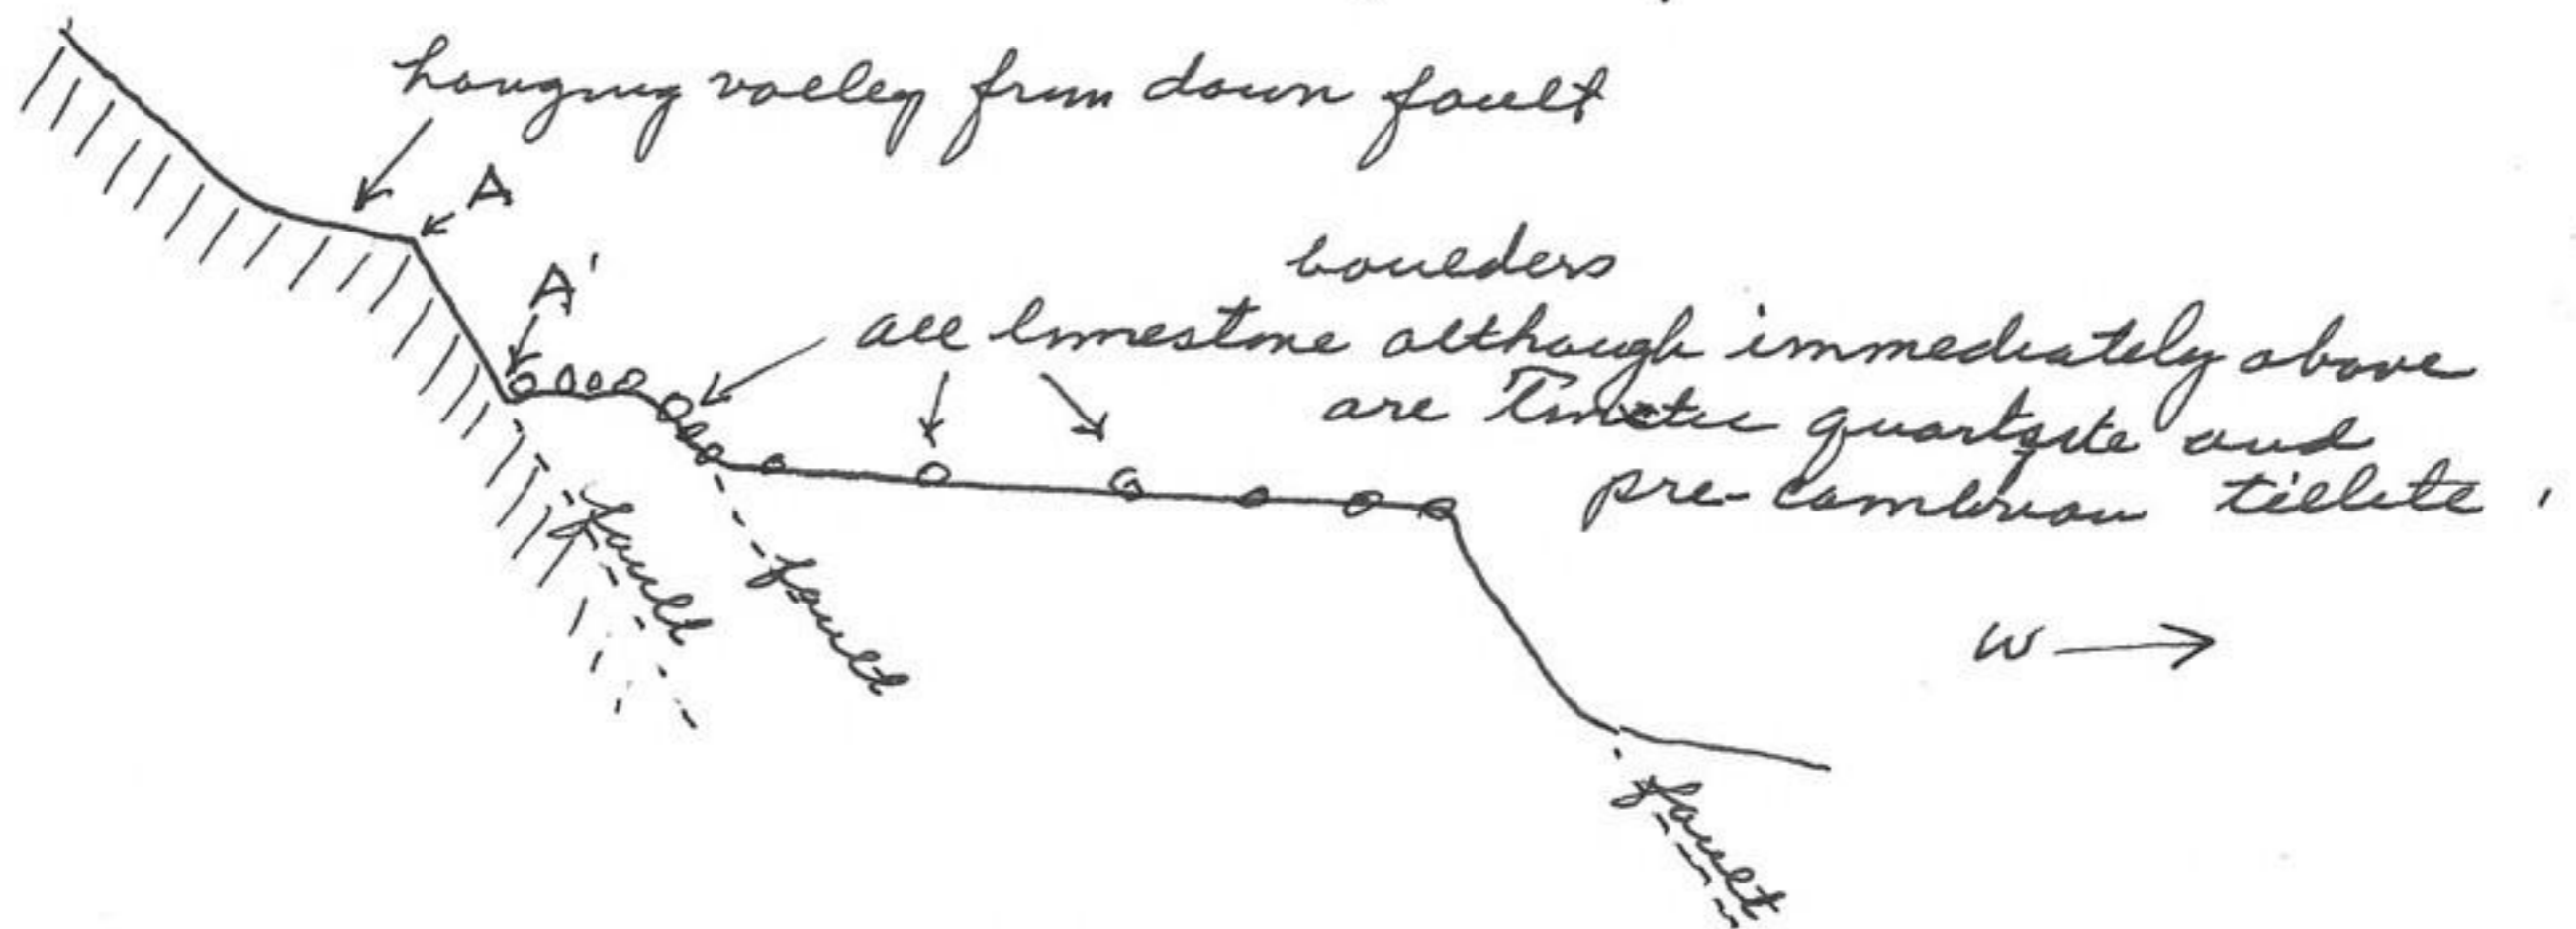 hanging valley from down fault
A
A'
boulders
all limestone although immediately above
are Tintic quartzite and
pre-Cambrian tillite.
fault
fault
W
fault